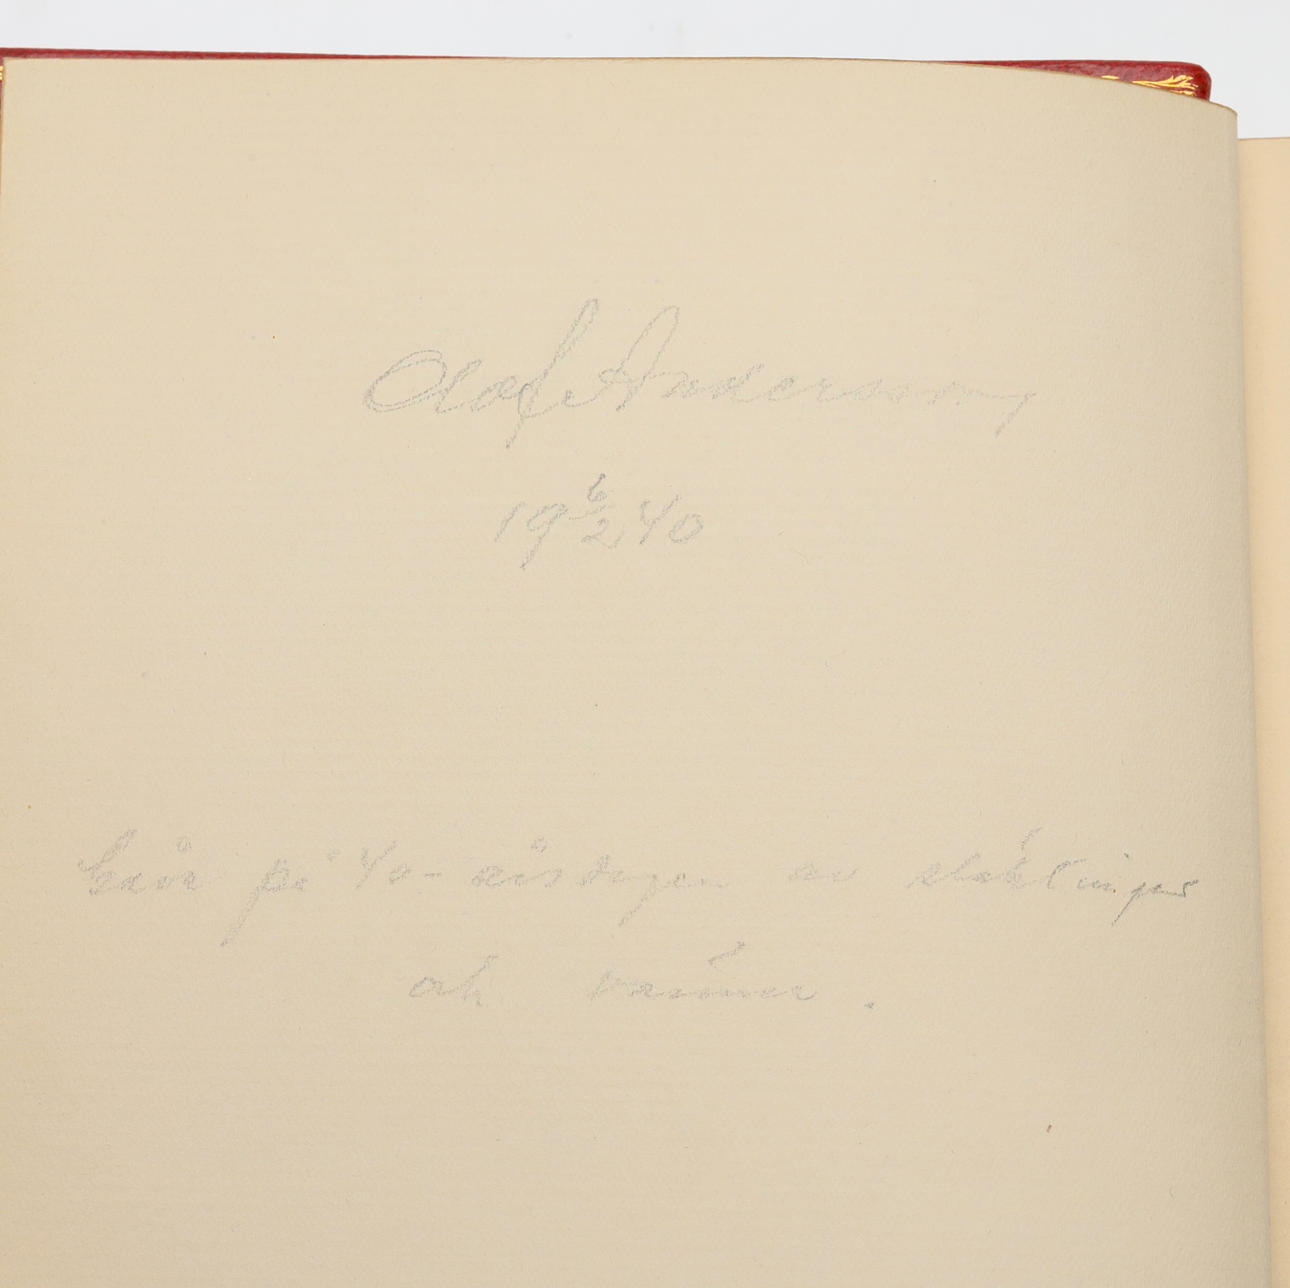 Olof Andersson
19 6/2 40
Gåva på 40-årsdagen av släktingar
och vänner.